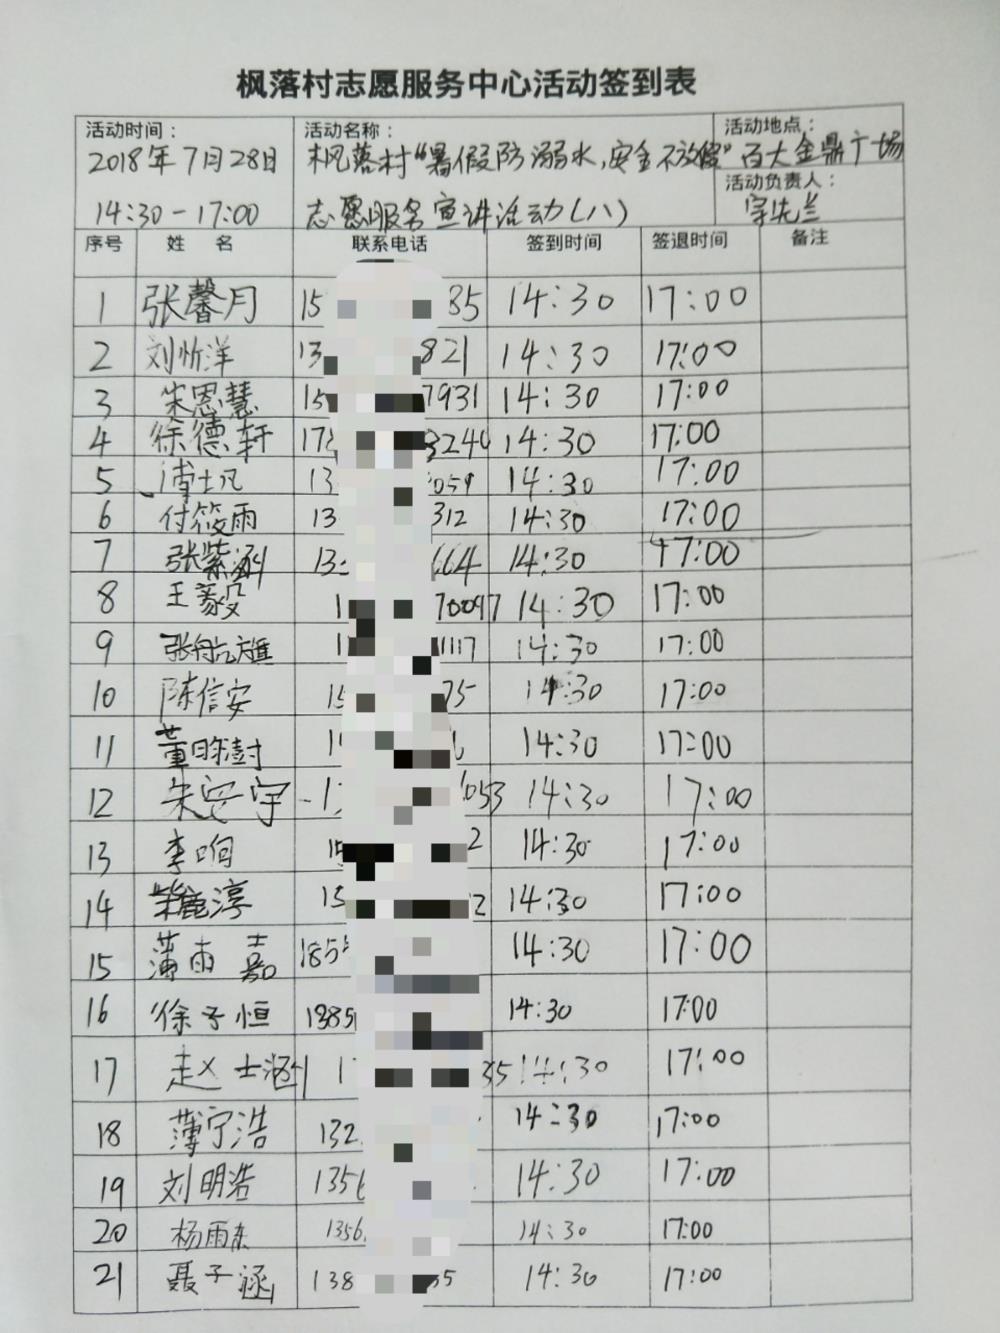 枫落村志愿服务中心活动签到表
活动时间： 活动名称： 活动地点：
2018年7月28日 枫落村“暑假防溺水,安全不放假” 百大金鼎广场
活动负责人：
14:30-17:00 志愿服务宣讲活动(八)
序号 姓 名 联系电话 签到时间 签退时间 备注
1 张馨月 15 85 14:30 17:00
2 刘忻洋 13 821 14:30 17:00
3 朱恩慧 15 7931 14:30 17:00
4 徐德轩 178 3240 14:30 17:00
5 13 059 14:30 17:00
6 付筱雨 13 312 14:30 17:00
7 张紫涵 13 664 14:30 17:00
8 王 70097 14:30 17:00
9 张航旗 1 1117 14:30 17:00
10 陈信安 15 75 14:30 17:00
11 董 1 14:30 17:00
12 朱安宇 1 053 14:30 17:00
13 李响 15 2 14:30 17:00
14 淳 15 2 14:30 17:00
15 薄雨嘉 185 14:30 17:00
16 徐子恒 1385 14:30 17:00
17 赵士涵 1 35 14:30 17:00
18 薄宁浩 132 14:30 17:00
19 刘明浩 1356 14:30 17:00
20 杨雨东 1356 14:30 17:00
21 聂子涵 138 35 14:30 17:00